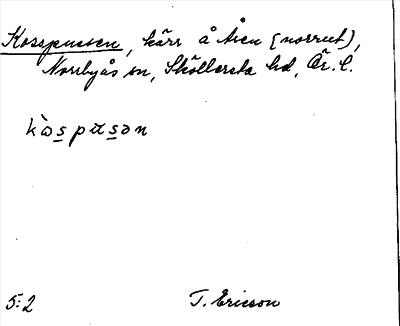 Kosspussen, kärr å Åsen (norrut),
Norrbyås sn, Sköllersta hd, Ör. l.
5:2 T. Ericson